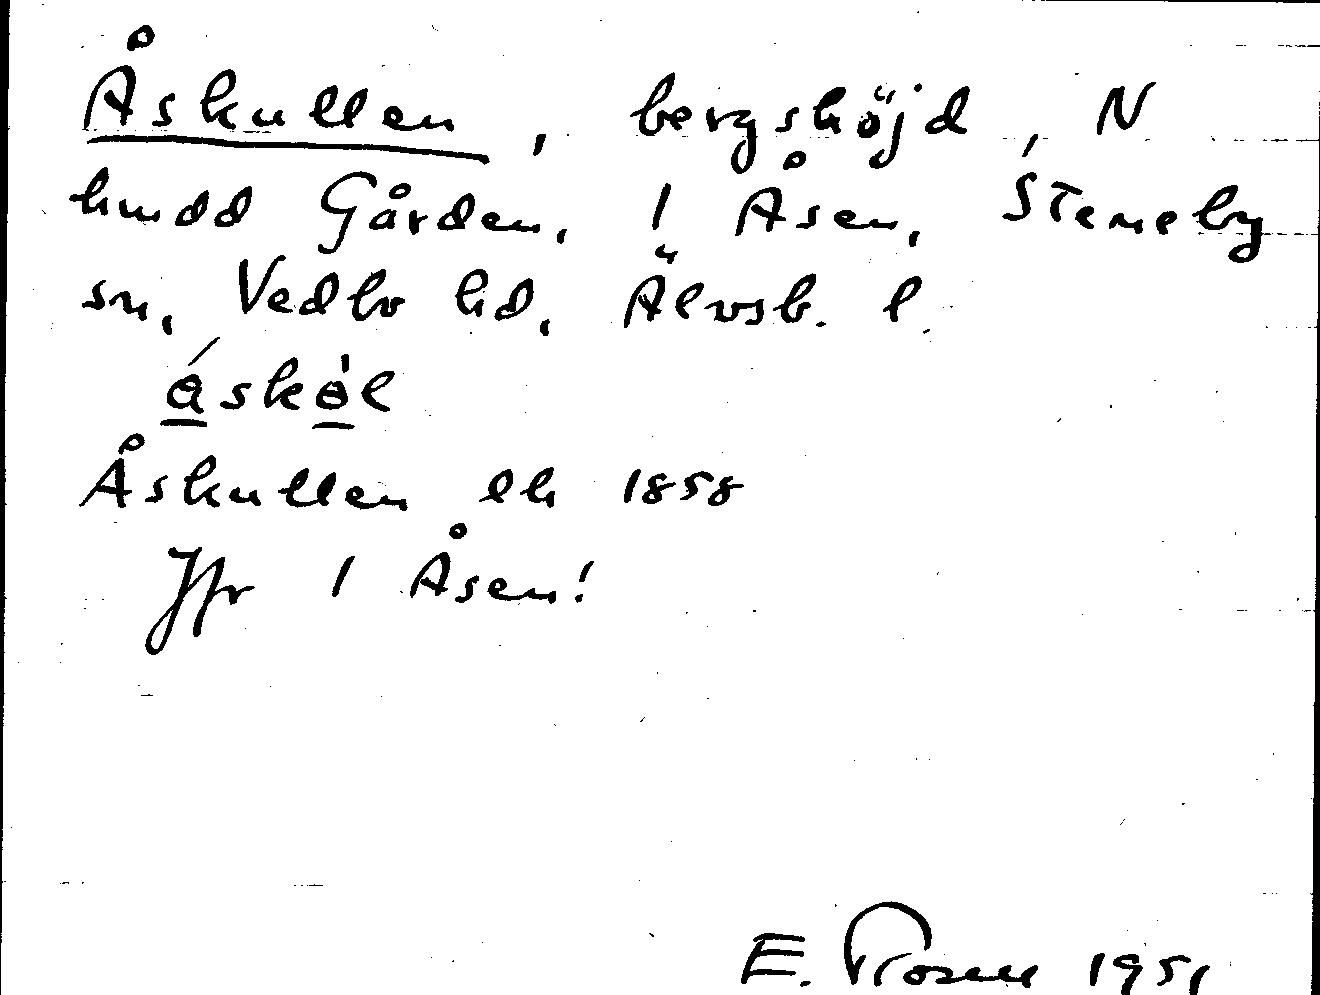 Åskullen, bergshöjd, N
hmdd Gården, 1 Åsen, Steneby
sn, Vedbo hd, Älvsb. l.
Åskullen lk 1858
Jfr 1 Åsen!
E. Rosell 1951